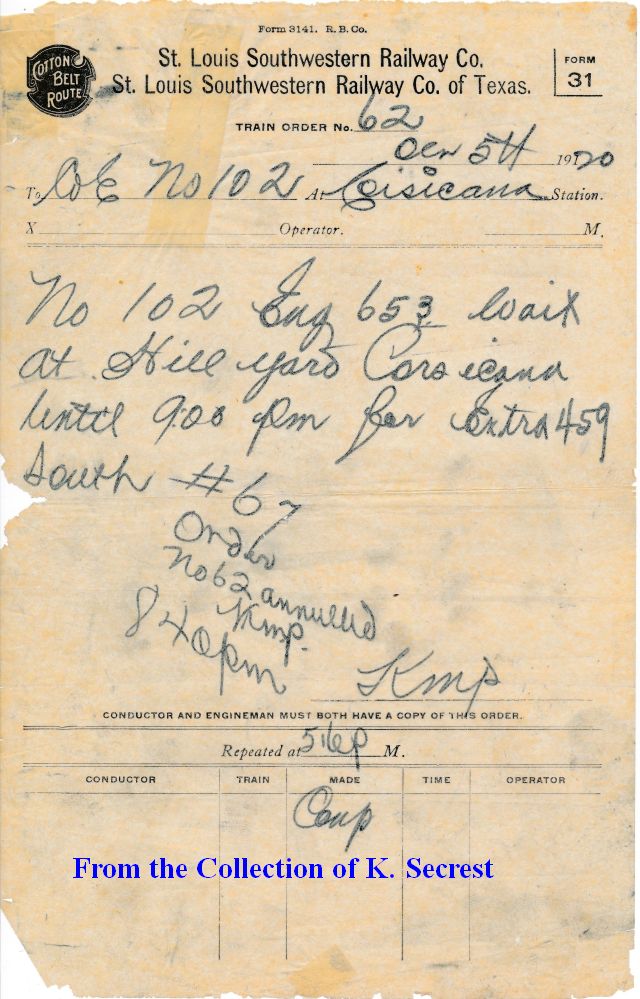 Form 3141. R. B. Co.
COTTON BELT ROUTE
St. Louis Southwestern Railway Co.
St. Louis Southwestern Railway Co. of Texas.
FORM 31
TRAIN ORDER No. 62
5th 1920
To C&E No 102 At Cisicana Station.
X Operator. M.
No 102 Eng 653 Wait
at Hill yard Corsicana
until 900 pm for Extra 459
South #67
Order
No 62 annulled
Kmp.
840pm
Kmp
CONDUCTOR AND ENGINEMAN MUST BOTH HAVE A COPY OF THIS ORDER.
Repeated at 516p M.
CONDUCTOR TRAIN MADE TIME OPERATOR
Comp
From the Collection of K. Secrest